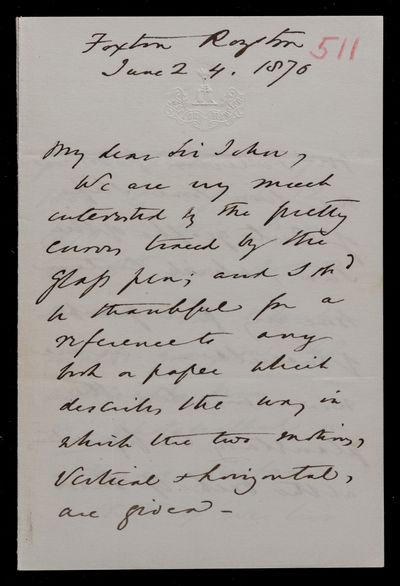 Foxton Royston 511
June 24. 1876
My dear Sir John,
We are very much
interested by the pretty
curves traced by the
glass pen; and I shd
be thankful for a
reference to any
book or paper which
describes the way in
which the two motions,
vertical & horizontal,
are given -